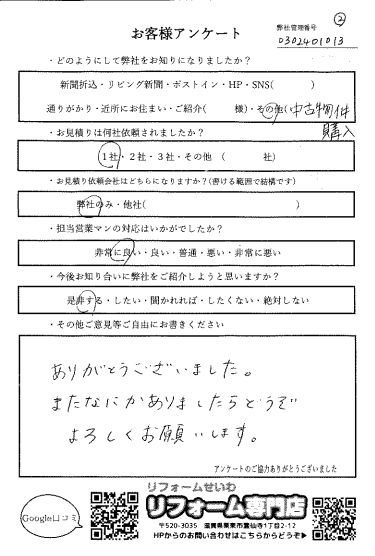 ②
お客様アンケート
弊社管理番号
0302401013
・どのようにして弊社をお知りになりましたか?
新聞折込・リビング新聞・ポストイン・HP・SNS( )
通りがかり・近所にお住まい・ご紹介( 様)・その他(中古物件
購入
・お見積りは何社依頼されましたか?
1社・2社・3社・その他 ( 社)
・お見積り依頼会社はどちらになりますか?(書ける範囲で結構です)
弊社のみ・他社( )
・担当営業マンの対応はいかがでしたか?
非常に良い・良い・普通・悪い・非常に悪い
・今後お知り合いに弊社をご紹介しようと思いますか?
是非する・したい・聞かれれば・したくない・絶対しない
・その他ご意見等ご自由にお書きください
ありがとうございました。
またなにかありましたらどうぞ
よろしくお願いします。
アンケートのご協力ありがとうございました
Google口コミ
リフォームせいわ
リフォーム専門店
〒520-3035 滋賀県栗東市霊仙寺1丁目2-12
HPからのお問い合わせはこちらからどうぞ▶